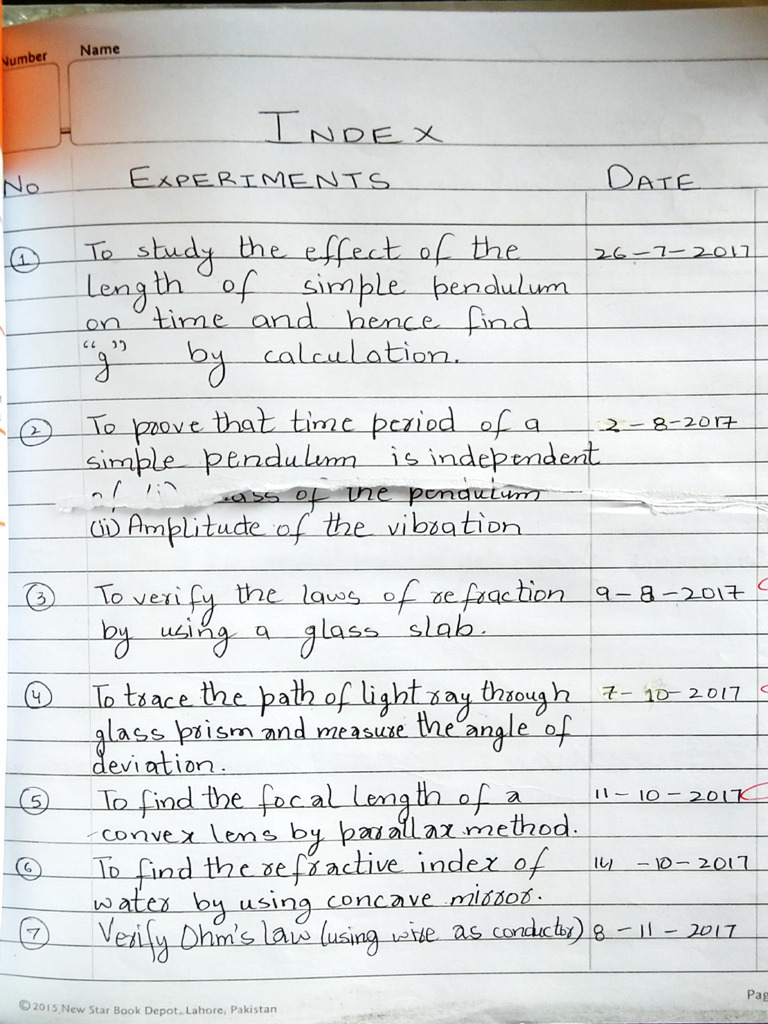 Number Name
INDEX
No EXPERIMENTS DATE
1 To study the effect of the 26-7-2017
length of simple pendulum
on time and hence find
"g" by calculation.
2 To prove that time period of a 2-8-2017
simple pendulum is independent
of (i) of the pendulum
(ii) Amplitude of the vibration
3 To verify the laws of refraction 9-8-2017
by using a glass slab.
4 To trace the path of light ray through 7-10-2017
glass prism and measure the angle of
deviation.
5 To find the focal length of a 11-10-2017
convex lens by parallax method.
6 To find the refractive index of 14-10-2017
water by using concave mirror.
7 Verify Ohm's law (using wire as conductor) 8-11-2017
Pag
© 2015 New Star Book Depot, Lahore, Pakistan